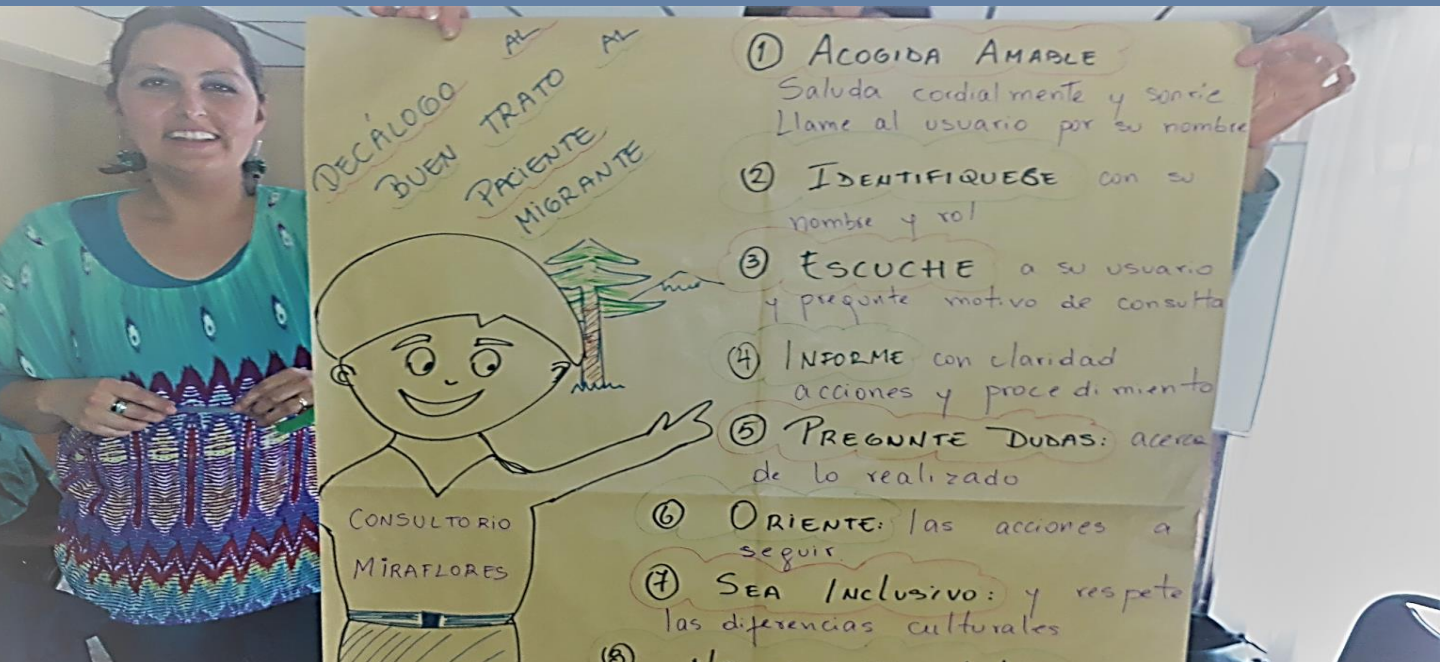 DECÁLOGO AL
BUEN TRATO AL
PACIENTE
MIGRANTE
CONSULTORIO
MIRAFLORES
① ACOGIDA AMABLE
Saluda cordialmente y sonrie
Llame al usuario por su nombre
② IDENTIFIQUESE con su
nombre y rol
③ ESCUCHE a su usuario
y pregunte motivo de consulta
④ INFORME con claridad
acciones y procedimiento
⑤ PREGUNTE DUDAS: acerca
de lo realizado
⑥ ORIENTE: las acciones a
seguir.
⑦ SEA INCLUSIVO: y respete
las diferencias culturales
⑧